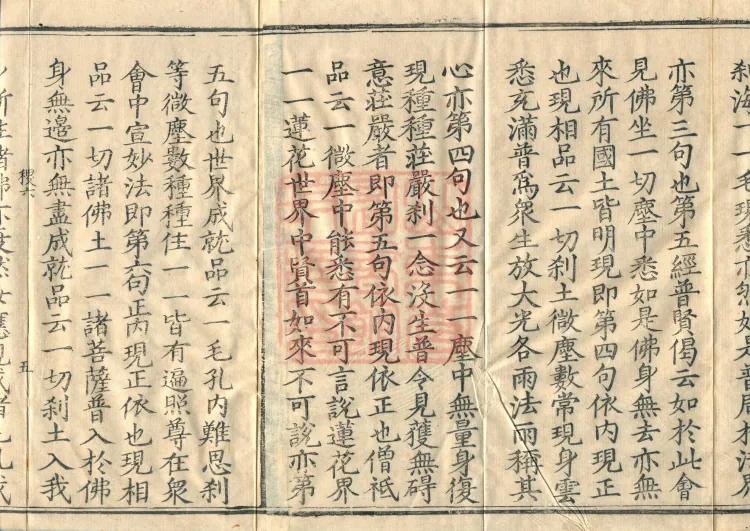 刹海一一毛現悉亦然如是普周於法界
亦第三句也第五經普賢偈云如於此會
見佛坐一切塵中悉如是佛身無去亦無
來所有國土皆明現即第四句依內現正
也現相品云一切刹土微塵數常現身雲
悉充滿普爲衆生放大光各雨法雨稱其
心亦第四句也又云一一塵中無量身復
現種種莊嚴刹一念没生普令見獲無碍
意莊嚴者即第五句依內現依正也僧祗
品云一微塵中能悉有不可言說蓮花界
一一蓮花世界中賢首如來不可說亦第
五句也世界成就品云一毛孔內難思刹
等微塵數種種住一一皆有遍照尊在衆
會中宣妙法即第六句正內現正依也現相
品云一切諸佛土一一諸菩薩普入於佛
身無邊亦無盡成就品云一切刹土入我
稷六
五